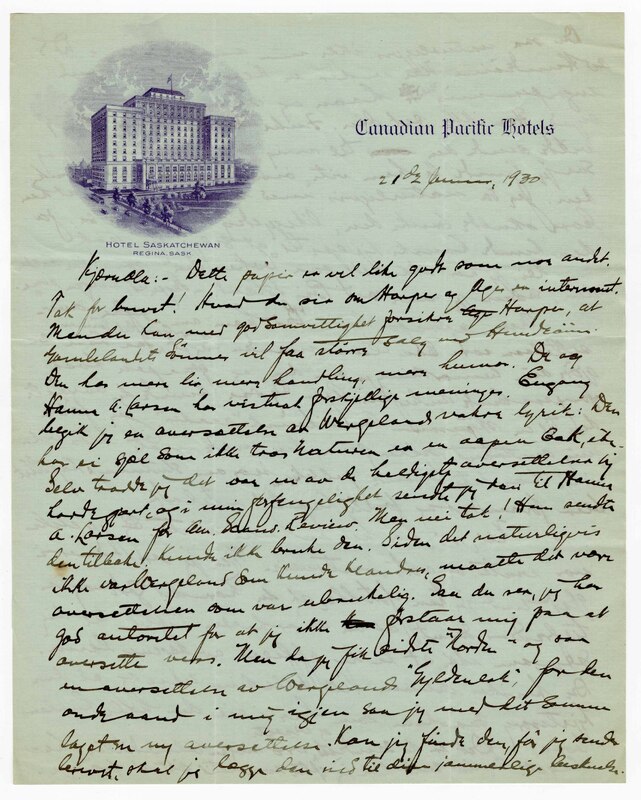 Canadian Pacific Hotels
HOTEL SASKATCHEWAN
REGINA. SASK
1930
Kjære Ola:- Dette papir er vel like godt som noe andet.
Tak for brevet! Hvad du sier om Harper og er interessant.
Men du kan med god samvittighet forsikre Harper, at
Gamlelandets Sønner vil faa større salg end
Den har mere liv, mere handling, mere humor. De og
Hanna A. Larsen har visstnok forskjellige meninger. Engang
begik jeg en oversettelse av Wergelands vakre lyrik: Den
har ei sjæl som ikke tror Naturen er en aapen Bok, etc.
Selv trodde jeg det var en av de heldigste oversettelser jeg
hadde gjort, og i min forfengelighet sendte jeg den til Hanna
A. Larsen for Am. Scand. Review. Men nei tak! Hun sendte
den tilbake, kunde ikke bruke den. Siden det naturligvis
ikke var Wergeland som kunde klandres, maatte det være
oversettelsen som var ubrukelig. Saa du ser, jeg har
god autoritet for at jeg ikke forstaar mig paa at
oversette vers. Men da jeg fik sidste "Norden" og saa
en oversettelse av Wergelands "Gyldenlak", for den
onde aand i mig igjen saa jeg med det samme
laget en ny oversettelse. Kan jeg finde den, før jeg sender
brevet, skal jeg legge den ved til din jammerlige